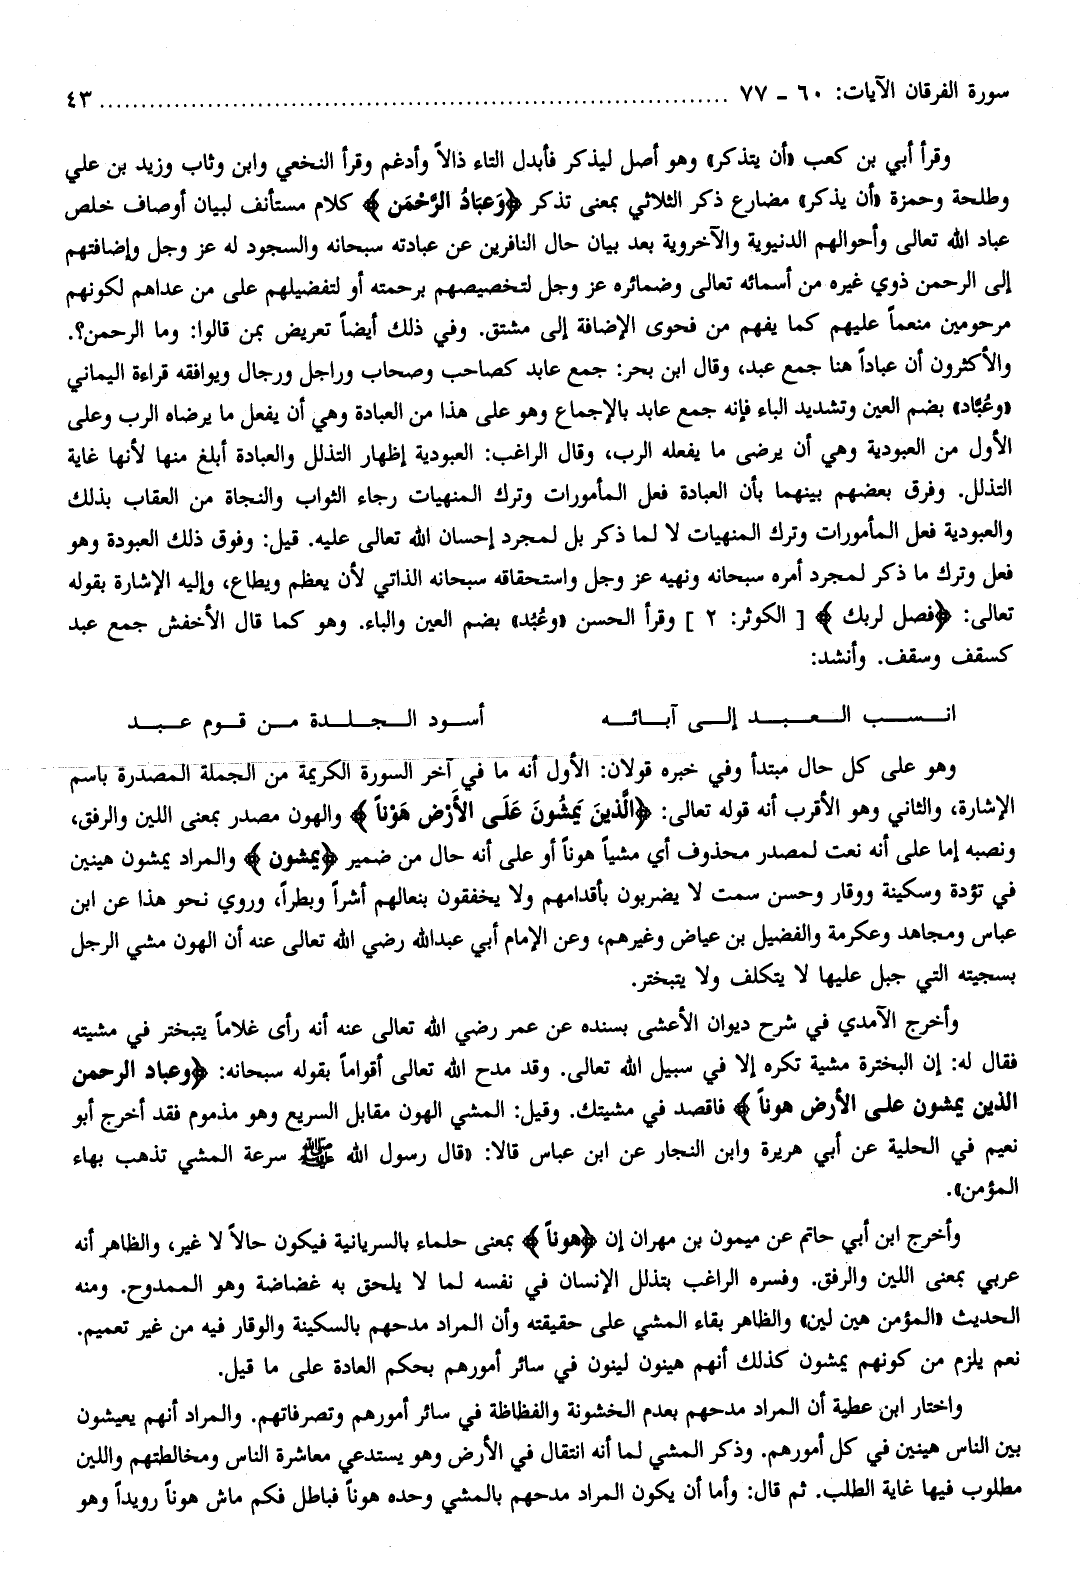 سورة الفرقان الآيات: ٦٠ ـ ٧٧ ........................................................................ ٤٣
وقرأ أبي بن كعب «أن يتذكر» وهو أصل ليذكر فأبدل التاء ذالاً وأدغم وقرأ النخعي وابن وثاب وزيد بن علي
وطلحة وحمزة «أن يذكر» مضارع ذكر الثلاثي بمعنى تذكر ﴿وَعبَادُ الرَّحْمَن﴾ كلام مستأنف لبيان أوصاف خلص
عباد الله تعالى وأحوالهم الدنيوية والآخروية بعد بيان حال النافرين عن عبادته سبحانه والسجود له عز وجل وإضافتهم
إلى الرحمن ذوي غيره من أسمائه تعالى وضمائره عز وجل لتخصيصهم برحمته أو لتفضيلهم على من عداهم لكونهم
مرحومين منعماً عليهم كما يفهم من فحوى الإضافة إلى مشتق. وفي ذلك أيضاً تعريض بمن قالوا: وما الرحمن؟.
والأكثرون أن عباداً هنا جمع عبد، وقال ابن بحر: جمع عابد كصاحب وصحاب وراجل ورجال ويوافقه قراءة اليماني
«وعُبَّاد» بضم العين وتشديد الباء فإنه جمع عابد بالإجماع وهو على هذا من العبادة وهي أن يفعل ما يرضاه الرب وعلى
الأول من العبودية وهي أن يرضى ما يفعله الرب، وقال الراغب: العبودية إظهار التذلل والعبادة أبلغ منها لأنها غاية
التذلل. وفرق بعضهم بينهما بأن العبادة فعل المأمورات وترك المنهيات رجاء الثواب والنجاة من العقاب بذلك
والعبودية فعل المأمورات وترك المنهيات لا لما ذكر بل لمجرد إحسان الله تعالى عليه. قيل: وفوق ذلك العبودة وهو
فعل وترك ما ذكر لمجرد أمره سبحانه ونهيه عز وجل واستحقاقه سبحانه الذاتي لأن يعظم ويطاع، وإليه الإشارة بقوله
تعالى: ﴿فصل لربك﴾ [ الكوثر: ٢ ] وقرأ الحسن «وعُبُد» بضم العين والباء. وهو كما قال الأخفش جمع عبد
كسقف وسقف. وأنشد:
انسب العبد إلى آبائه أسود الجلدة من قوم عبد
وهو على كل حال مبتدأ وفي خبره قولان: الأول أنه ما في آخر السورة الكريمة من الجملة المصدرة باسم
الإشارة، والثاني وهو الأقرب أنه قوله تعالى: ﴿الَّذينَ يَمشُونَ عَلَى الأَرْض هَوْناً﴾ والهون مصدر بمعنى اللين والرفق،
ونصبه إما على أنه نعت لمصدر محذوف أي مشياً هوناً أو على أنه حال من ضمير ﴿يمشون﴾ والمراد يمشون هينين
في تؤدة وسكينة ووقار وحسن سمت لا يضربون بأقدامهم ولا يخفقون بنعالهم أشراً وبطراً، وروي نحو هذا عن ابن
عباس ومجاهد وعكرمة والفضيل بن عياض وغيرهم، وعن الإمام أبي عبدالله رضي الله تعالى عنه أن الهون مشي الرجل
بسجيته التي جبل عليها لا يتكلف ولا يتبختر.
وأخرج الآمدي في شرح ديوان الأعشى بسنده عن عمر رضي الله تعالى عنه أنه رأى غلاماً يتبختر في مشيته
فقال له: إن البخترة مشية تكره إلا في سبيل الله تعالى. وقد مدح الله تعالى أقواماً بقوله سبحانه: ﴿وعباد الرحمن
الذين يمشون على الأرض هوناً﴾ فاقصد في مشيتك. وقيل: المشي الهون مقابل السريع وهو مذموم فقد أخرج أبو
نعيم في الحلية عن أبي هريرة وابن النجار عن ابن عباس قالا: «قال رسول الله ﷺ سرعة المشي تذهب بهاء
المؤمن».
وأخرج ابن أبي حاتم عن ميمون بن مهران إن ﴿هوناً﴾ بمعنى حلماء بالسريانية فيكون حالاً لا غير، والظاهر أنه
عربي بمعنى اللين والرفق. وفسره الراغب بتذلل الإنسان في نفسه لما لا يلحق به غضاضة وهو الممدوح. ومنه
الحديث «المؤمن هين لين» والظاهر بقاء المشي على حقيقته وأن المراد مدحهم بالسكينة والوقار فيه من غير تعميم.
نعم يلزم من كونهم يمشون كذلك أنهم هينون لينون في سائر أمورهم بحكم العادة على ما قيل.
واختار ابن عطية أن المراد مدحهم بعدم الخشونة والفظاظة في سائر أمورهم وتصرفاتهم. والمراد أنهم يعيشون
بين الناس هينين في كل أمورهم. وذكر المشي لما أنه انتقال في الأرض وهو يستدعي معاشرة الناس ومخالطتهم واللين
مطلوب فيها غاية الطلب. ثم قال: وأما أن يكون المراد مدحهم بالمشي وحده هوناً فباطل فكم ماش هوناً رويداً وهو